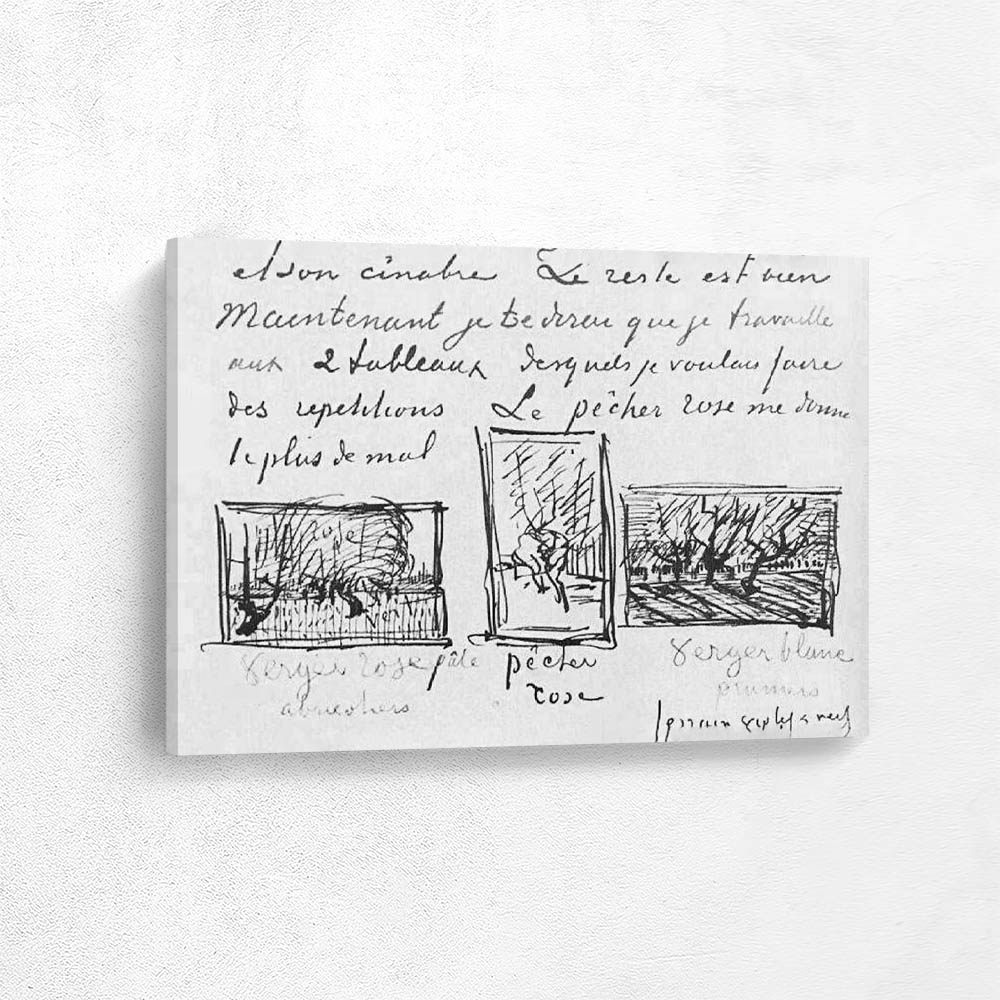 et son cinabre Le reste est bien
Maintenant je te dirai que je travaille
aux 2 tableaux desquels je voulais faire
des repetitions Le pêcher rose me donne
le plus de mal
rose
verger rose pâle
abricotiers
pêcher
rose
verger blanc
pruniers